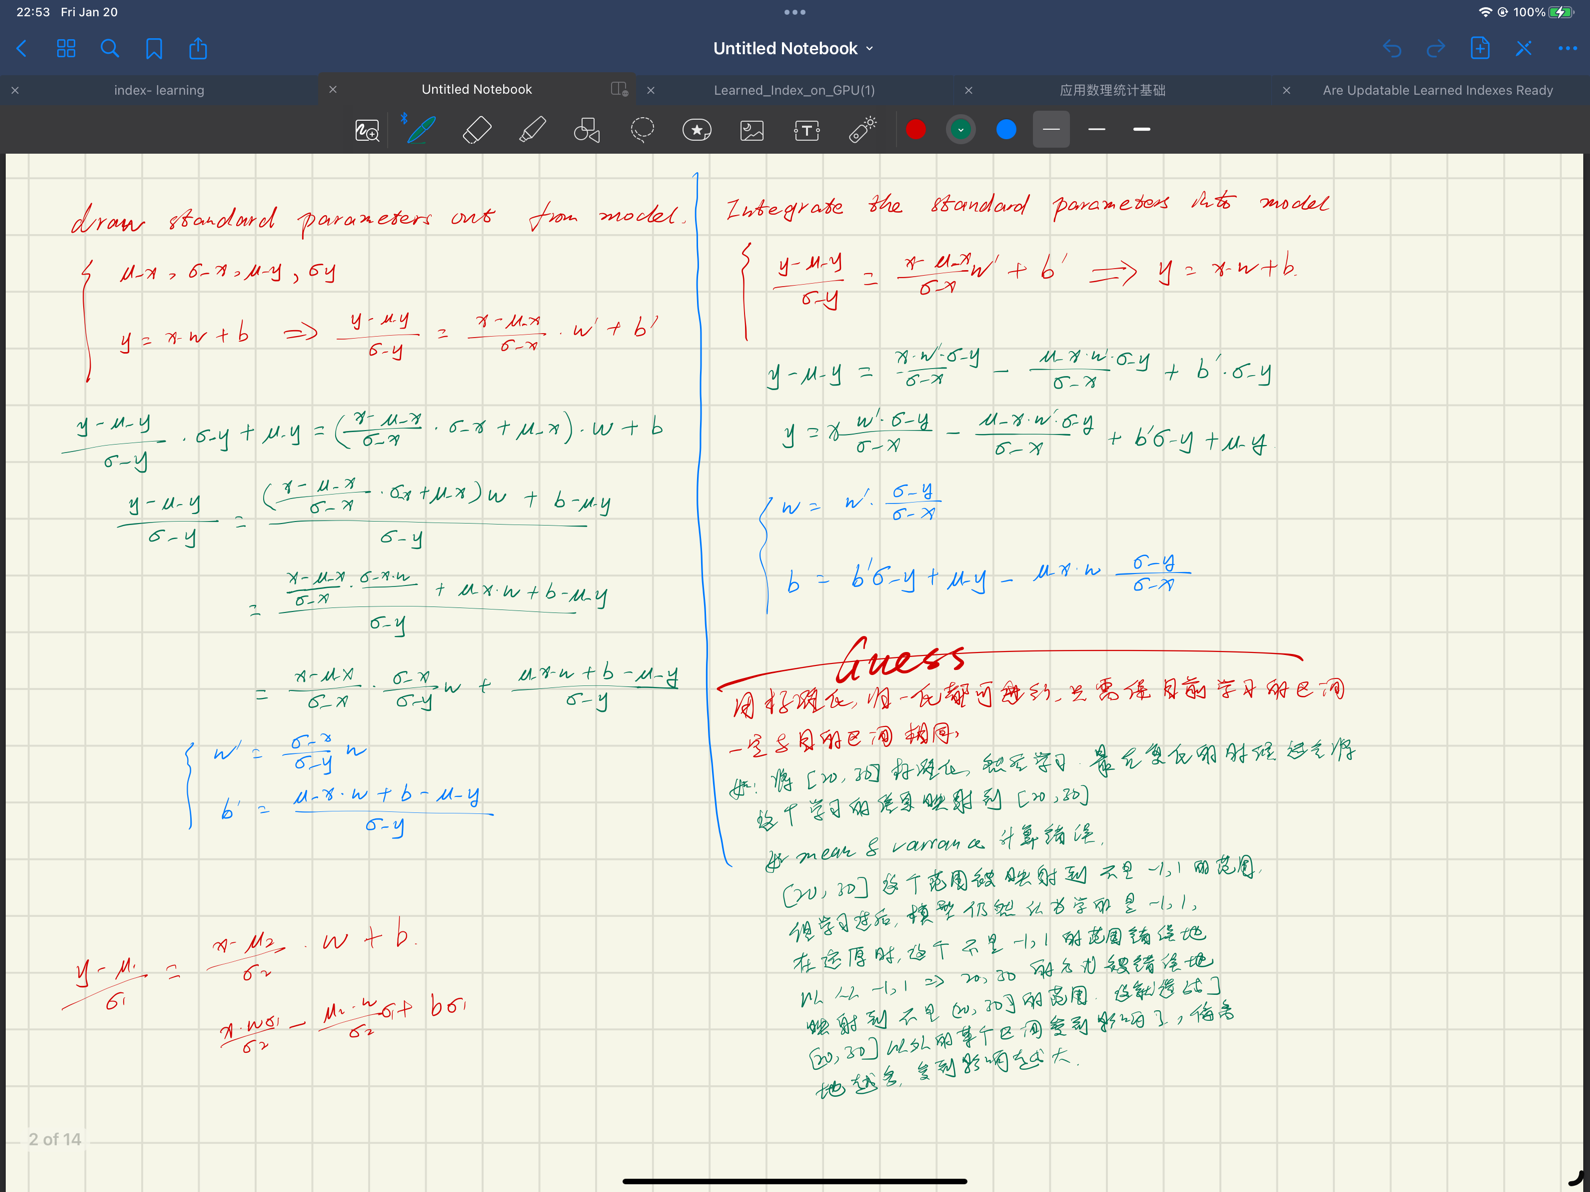 22:53 Fri Jan 20
100%
Untitled Notebook
index- learning
Untitled Notebook
Learned_Index_on_GPU(1)
应用数理统计基础
Are Updatable Learned Indexes Ready
draw standard parameters out from model.
μ-x, σ-x, μ-y, σy
y = x·w + b ⇒ (y-μ-y)/(σ-y) = (x-μ-x)/(σ-x) · w' + b'
(y-μ-y)/(σ-y) · σ-y + μ-y = ((x-μ-x)/(σ-x) · σ-x + μ-x) · w + b
(y-μ-y)/(σ-y) = (((x-μ-x)/(σ-x) · σx + μ-x)w + b-μ-y)/(σ-y)
= ((x-μ-x)/(σ-x) · σ-x·w + μx·w + b-μ-y)/(σ-y)
= (x-μx)/(σ-x) · (σ-x)/(σ-y) w + (μx·w + b - μ-y)/(σ-y)
w' = (σ-x)/(σ-y) w
b' = (μ-x·w + b - μ-y)/(σ-y)
(y-μ₁)/σ₁ = (x-μ₂)/σ₂ · w + b.
(x·wσ₁)/σ₂ - (μ₂·w)/σ₂ σ₁ + bσ₁
Integrate the standard parameters into model
(y-μ-y)/(σ-y) = (x-μ-x)/(σ-x) w' + b' ⇒ y = x·w + b.
y-μ-y = (x·w'·σ-y)/(σ-x) - (μ-x·w'·σ-y)/(σ-x) + b'·σ-y
y = x (w'·σ-y)/(σ-x) - (μ-x·w'·σ-y)/(σ-x) + b'σ-y + μ-y.
w = w'· (σ-y)/(σ-x)
b = b'σ-y + μ-y - μx·w (σ-y)/(σ-x)
Guess
用标准化, 归一化都可 只需保 目前学习的区间
一定与目的区间相同,
如: 将 [20, 30] 标准化, 学习. 最 复 的时候
这个学习的结果映射到 [20, 30]
如 mean & variance 计算错误.
[20, 30] 这个范围被映射到不是 -1, 1 的范围.
但学习过后, 模型仍然认为学的是 -1, 1,
在还原时, 这个不是 -1, 1 的范围错误地
以从 -1, 1 ⇒ 20, 30 的 错误地
映射到不是 [20, 30] 的范围.
[20, 30] 以外的某个区间受到影响了, 偏离
地越多, 受到影响越大.
2 of 14